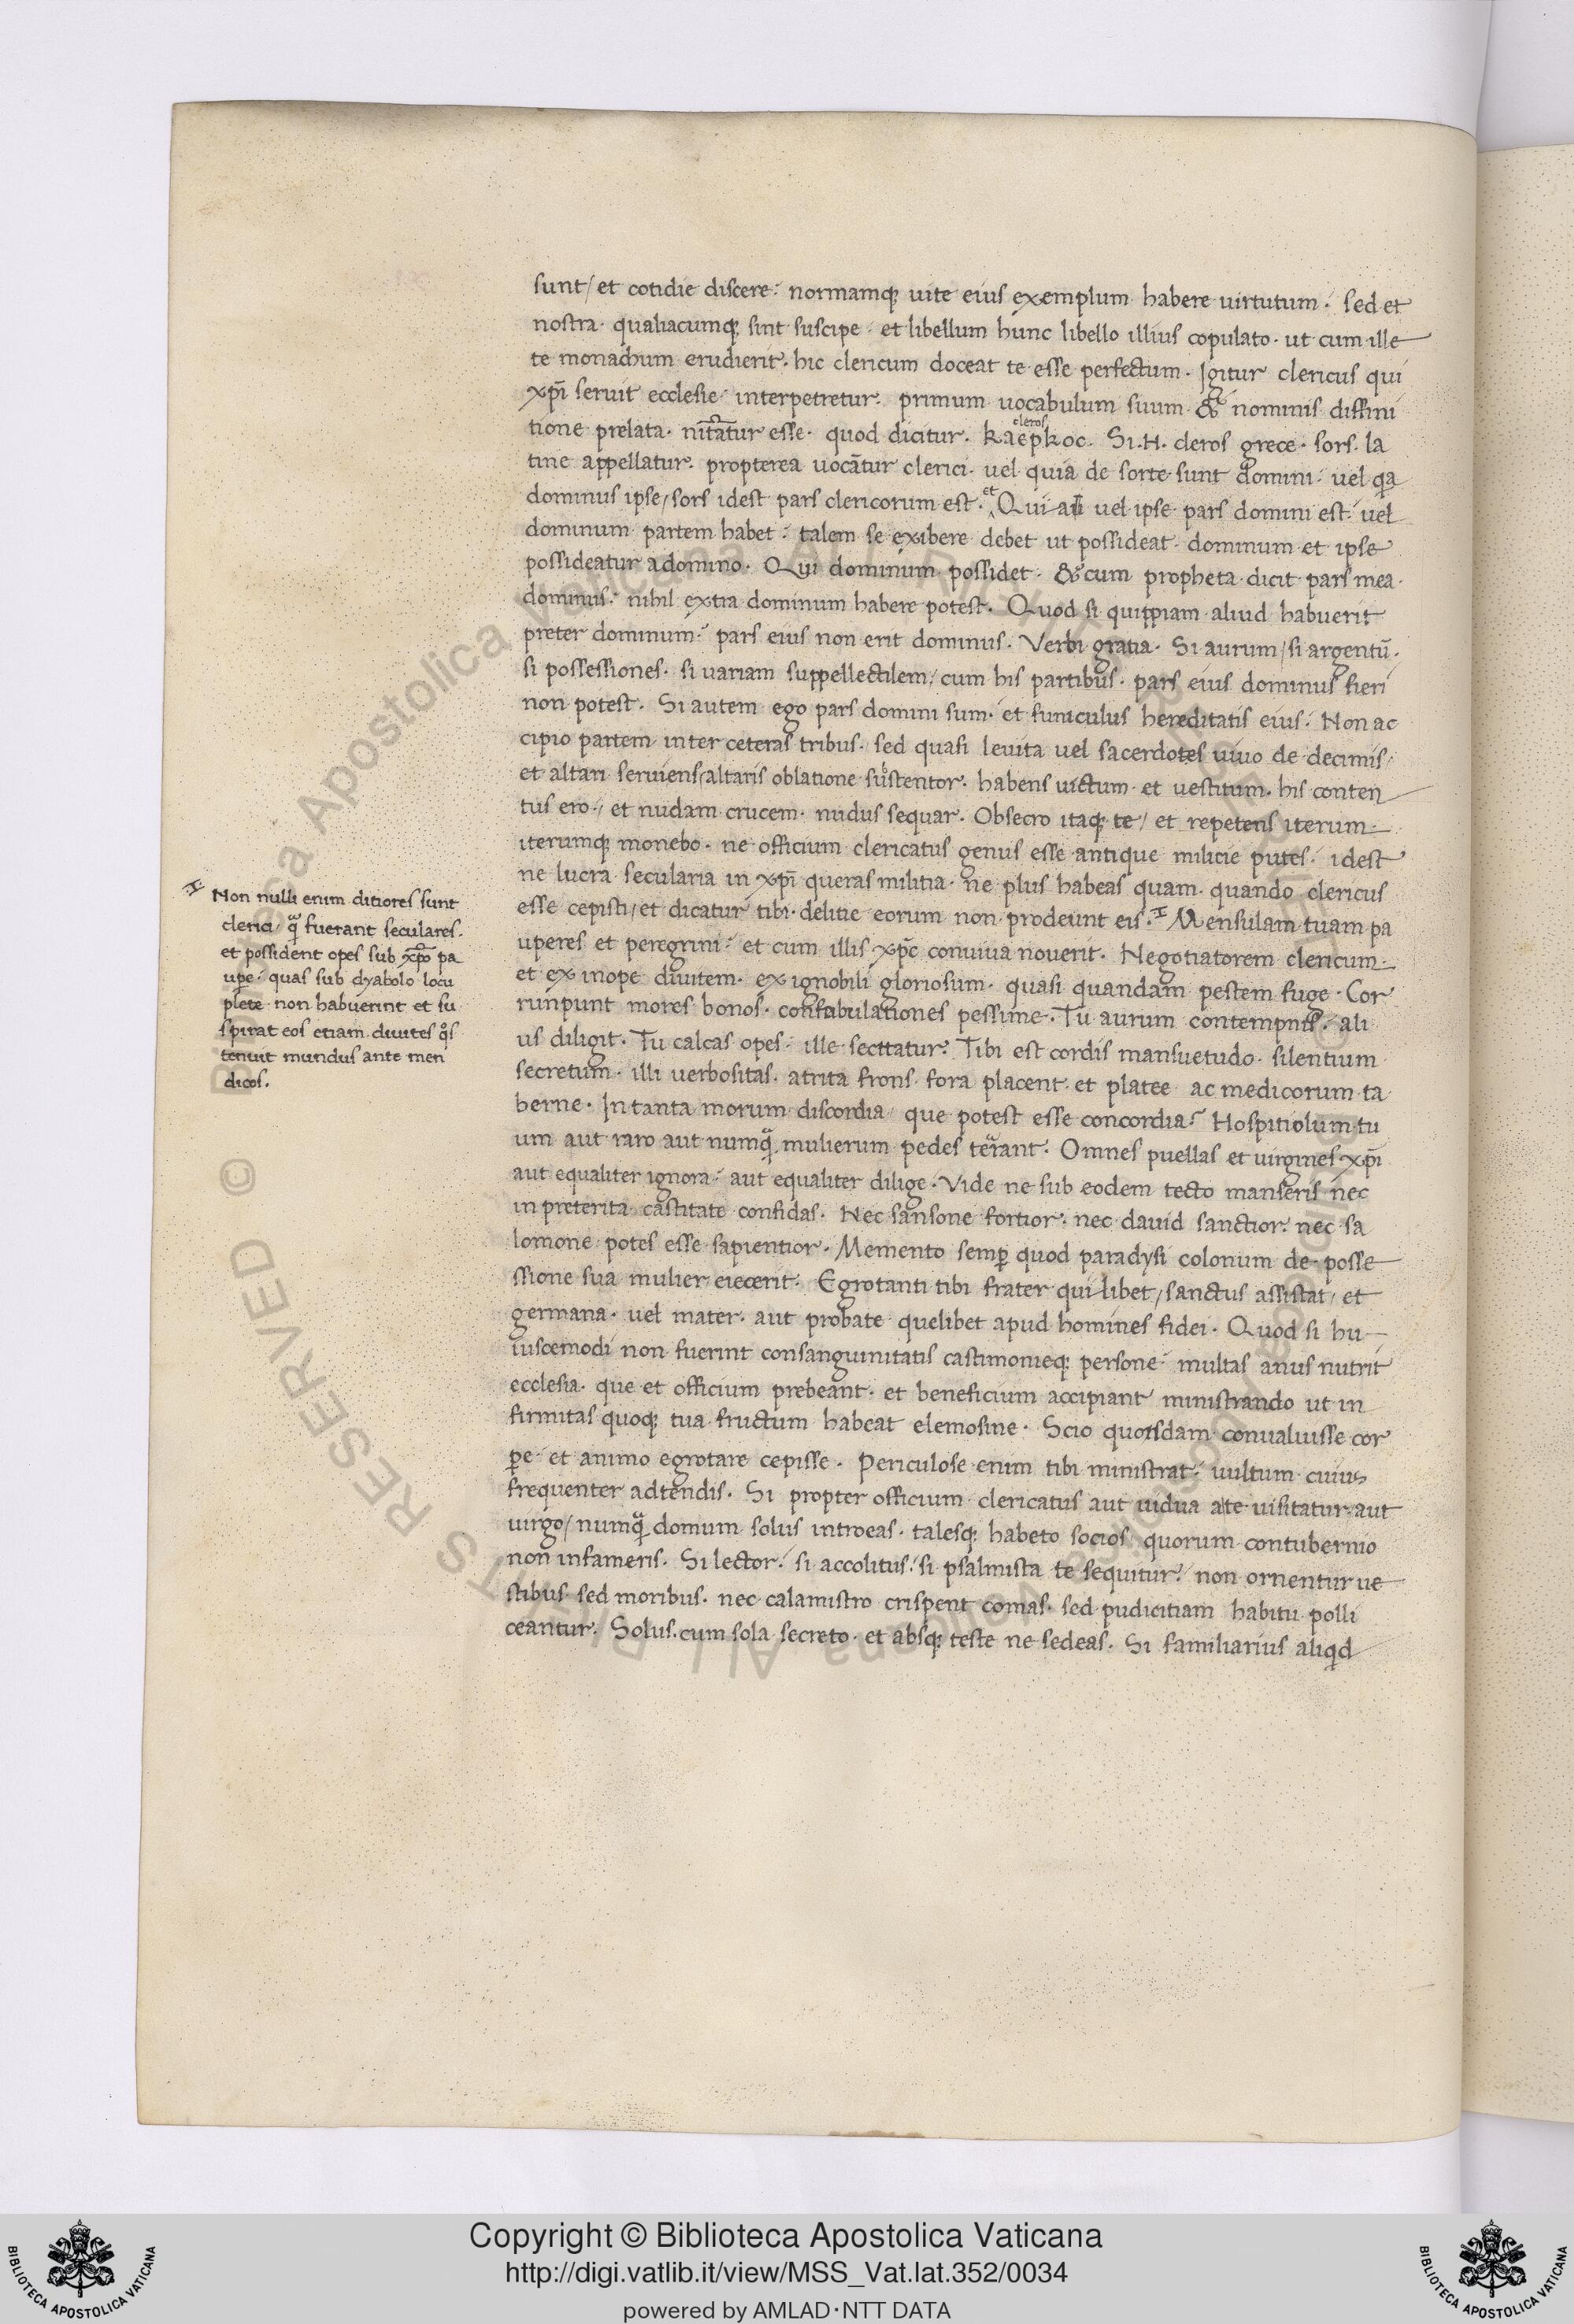 sunt/ et cotidie discere: normamq; uite eius exemplum habere uirtutum. sed et
nostra qualiacumq; sint suscipe: et libellum hunc libello illius copulato. ut cum ille
te monachum erudierit. hic clericum doceat te esse perfectum. Igitur clericus qui
xp̄i seruit ecclesie: interpetretur primum uocabulum suum. & nominis diffini
tione prelata. nitatur esse quod dicitur.
cleros
Si .H. cleros grece. sors la
tine appellatur. propterea uocātur clerici. uel quia de sorte sunt domini: uel qa
dominus ipse/ sors idest pars clericorum est. et Qui au vel ipse pars domini est: uel
dominum partem habet: talem se exibere debet ut possideat dominum et ipse
possideatur adomino. Qui dominum possidet. & cum propheta dicit pars mea
dominus: nihil extra dominum habere potest. Quod si quippiam aliud habuerit
preter dominum: pars eius non erit dominus. Verbi gratia. Si aurum/ si argentū.
si possessiones. si uariam suppellectilem/ cum his partibus. pars eius dominus fieri
non potest. Si autem ego pars domini sum. et funiculus hereditatis eius. Non ac
cipio partem inter ceteras tribus. sed quasi leuita uel sacerdotes uiuo de decimis/
et altari seruiens/ altaris oblatione sustentor. habens uictum et uestitum. his conten
tus ero./ et nudam crucem. nudus sequar. Obsecro itaq; te/ et repetens iterum
iterumq; monebo. ne officium clericatus genus esse antique milicie putes. idest
ne lucra secularia in xp̄i queras militia. ne plus habeas quam. quando clericus
esse cepisti/ et dicatur tibi. delitie eorum non prodeunt eis. Mensulam tuam pa
uperes et peregrini: et cum illis xp̄c conuiua nouerit. Negotiatorem clericum
et ex inope diuitem. ex ignobili gloriosum. quasi quandam pestem fuge. Cor
runpunt mores bonos. confabulationes pessime. Tu aurum contempnis. ali
us diligit. Tu calcas opes: ille secttatur. Tibi est cordis mansuetudo. silentium
secretum. illi uerbositas. atrita frons. fora placent et platee ac medicorum ta
berne. In tanta morum discordia que potest esse concordia? Hospitiolum tu
um aut raro aut numq̄ mulierum pedes terant. Omnes puellas et uirgines xp̄i
aut equaliter ignora: aut equaliter dilige. Vide ne sub eodem tecto manseris nec
in preterita castitate confidas. Nec sansone fortior. nec dauid sanctior. nec sa
lomone potes esse sapientior. Memento semp̄ quod paradysi colonum de posse
ssione sua mulier eiecerit. Egrotanti tibi frater qui libet/ sanctus assistat/ et
germana. uel mater. aut probate quelibet apud homines fidei. Quod si hu
iuscemodi non fuerint consanguinitatis castimonieq; persone: multas anus nutrit
ecclesia. que et officium prebeant. et beneficium accipiant ministrando ut in
firmitas quoq; tua fructum habeat elemosine. Scio quosdam conualuisse cor
p̄e et animo egrotare cepisse. Periculose enim tibi ministrat: uultum cuius
frequenter adtendis. Si propter officium clericatus aut uidua a te uisitatur. aut
uirgo/ numq̄ domum solus introeas. talesq; habeto socios quorum contubernio
non infameris. Si lector. si accolitus. si psalmista te sequitur. non ornentur ue
stibus sed moribus. nec calamistro crispent comas. sed pudicitiam habitu polli
ceantur. Solus. cum sola secreto. et absq; teste ne sedeas. Si familiarius aliqd
Non nulli enim ditiores sunt
clerici/ q̄ fuerant seculares.
et possident opes sub xp̄o pa
up̄e: quas sub dyabolo locu
plete non habuerint et su
spirat eos etiam diuites q̊s
tenuit mundus ante men
dicos.
Biblioteca Apostolica Vaticana ALL RIGHTS RESERVED ©
Copyright © Biblioteca Apostolica Vaticana
http://digi.vatlib.it/view/MSS_Vat.lat.352/0034
powered by AMLAD·NTT DATA
BIBLIOTECA APOSTOLICA VATICANA
BIBLIOTECA APOSTOLICA VATICANA